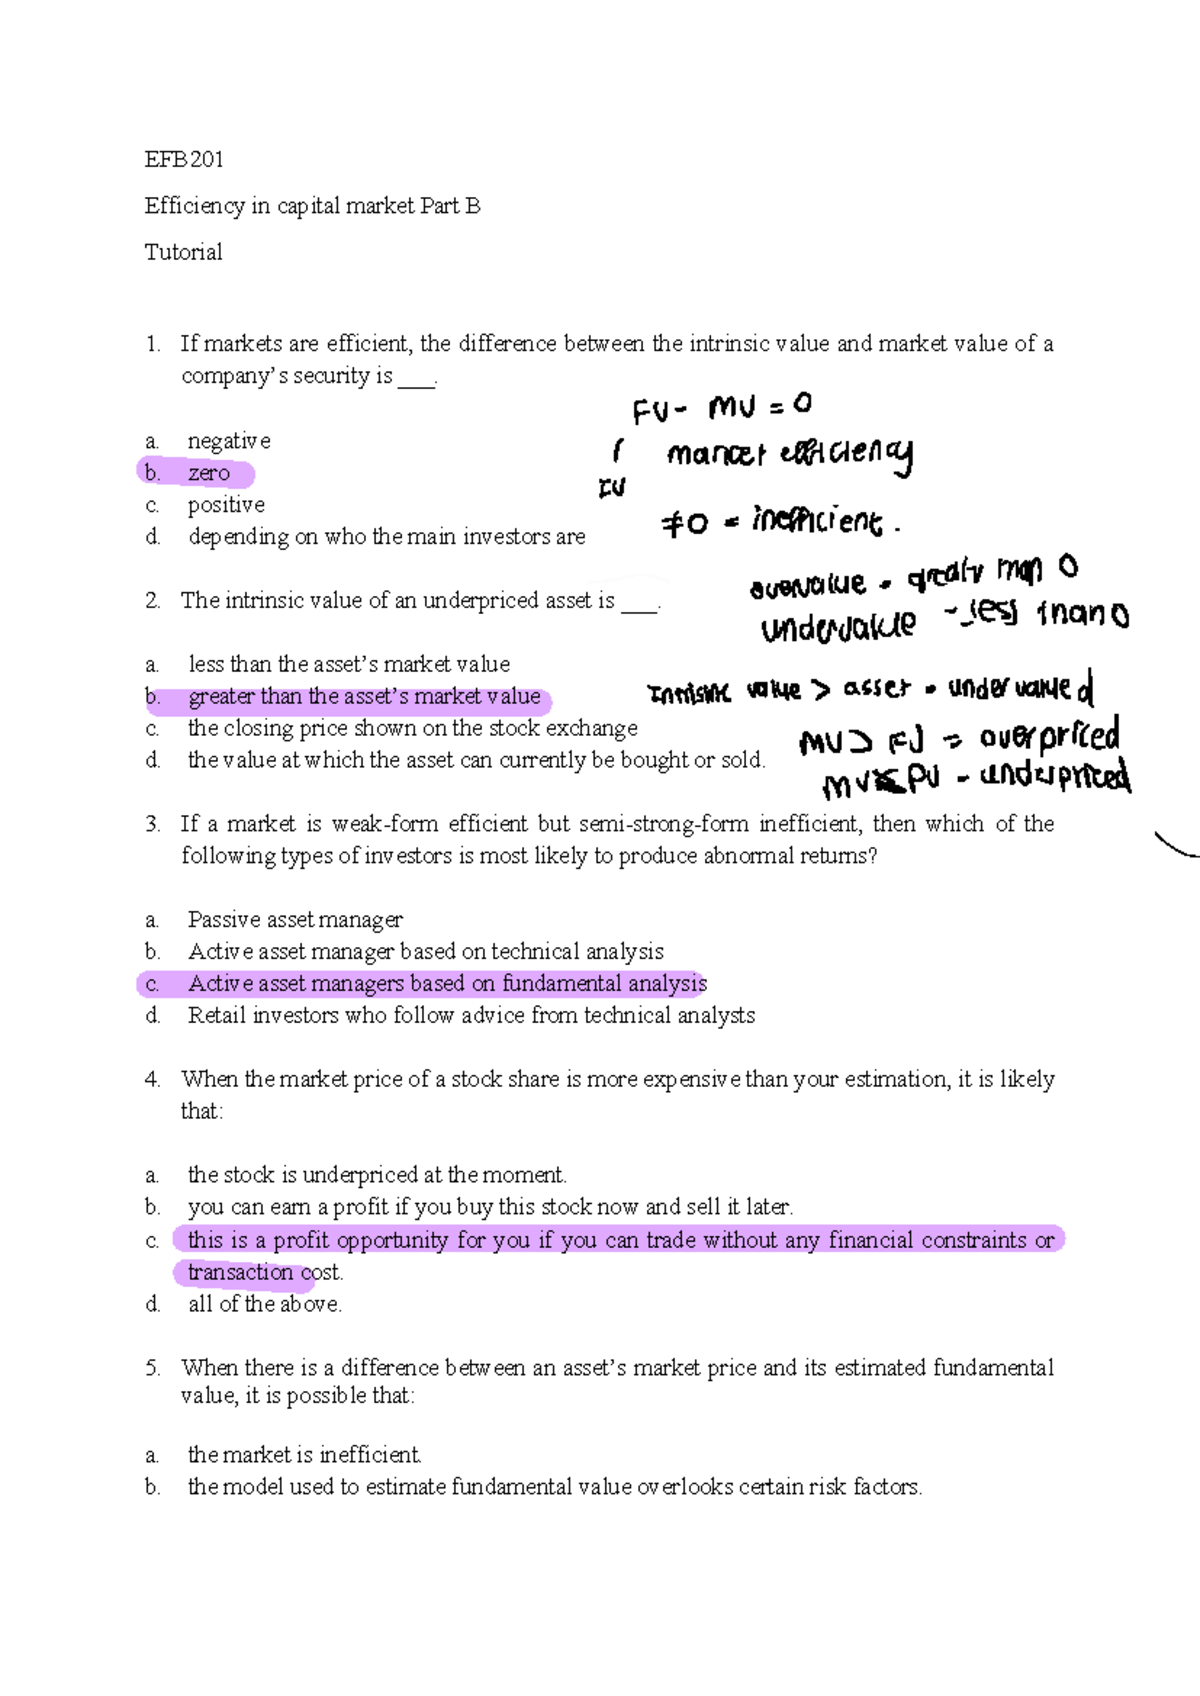 EFB201
Efficiency in capital market Part B
Tutorial
1. If markets are efficient, the difference between the intrinsic value and market value of a
company's security is ___.
FV - MV = 0
a. negative
market efficiency
b. zero
IV
c. positive
≠0 = inefficient.
d. depending on who the main investors are
overvalue - greatly than 0
2. The intrinsic value of an underpriced asset is ___.
undervalue - less than 0
a. less than the asset's market value
b. greater than the asset's market value
Intrisic value > asset = undervalued
c. the closing price shown on the stock exchange
MV > FV = overpriced
d. the value at which the asset can currently be bought or sold.
MV < FV - underpriced
3. If a market is weak-form efficient but semi-strong-form inefficient, then which of the
following types of investors is most likely to produce abnormal returns?
a. Passive asset manager
b. Active asset manager based on technical analysis
c. Active asset managers based on fundamental analysis
d. Retail investors who follow advice from technical analysts
4. When the market price of a stock share is more expensive than your estimation, it is likely
that:
a. the stock is underpriced at the moment.
b. you can earn a profit if you buy this stock now and sell it later.
c. this is a profit opportunity for you if you can trade without any financial constraints or
transaction cost.
d. all of the above.
5. When there is a difference between an asset's market price and its estimated fundamental
value, it is possible that:
a. the market is inefficient.
b. the model used to estimate fundamental value overlooks certain risk factors.